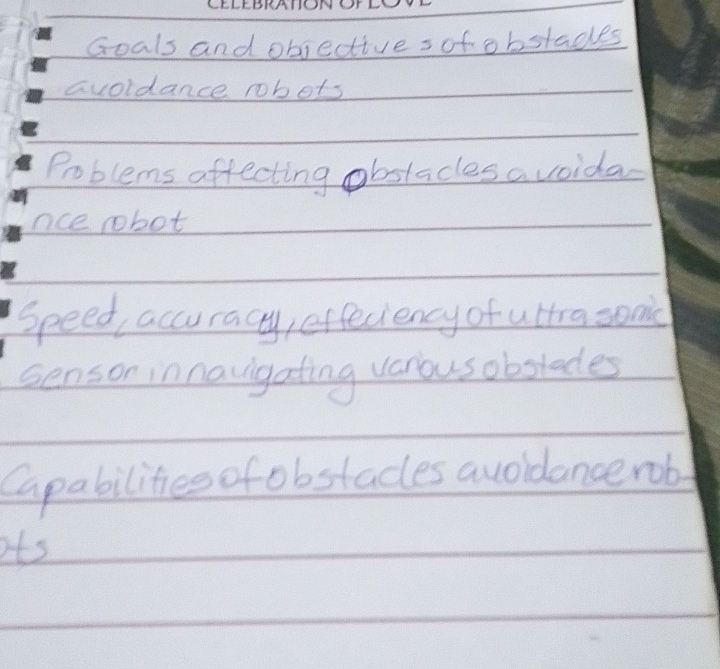 CELEBRATION OF LOVE
Goals and objective s of obstacles
avoidance robots
Problems affecting obstacles avoida-
nce robot
Speed, accuracy, effeciency of ultra sonic
sensor in navigating various obstacles
Capabilities of obstacles avoidance rob-
ots